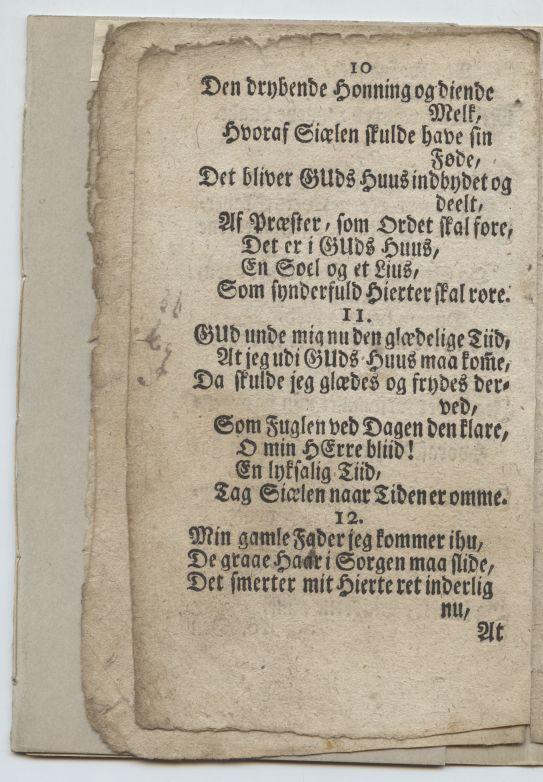 10
Den drybende Honning og diende
Melk,
Hvoraf Siælen skulde have sin
Føde,
Det bliver GUds Huus indbydet og
deelt,
Af Præster, som Ordet skal føre,
Det er i GUds Huus,
En Soel og et Lius,
Som synderfuld Hierter skal røre.
11.
GUd unde mig nu den glædelige Tiid,
At jeg udi GUds Huus maa kom̃e,
Da skulde jeg glædes og frydes der-
ved,
Som Fuglen ved Dagen den klare,
O min HErre bliid!
En lyksalig Tiid,
Tag Siælen naar Tiden er omme.
12.
Min gamle Fader jeg kommer ihu,
De graae Haar i Sorgen maa slide,
Det smerter mit Hierte ret inderlig
nu,
At